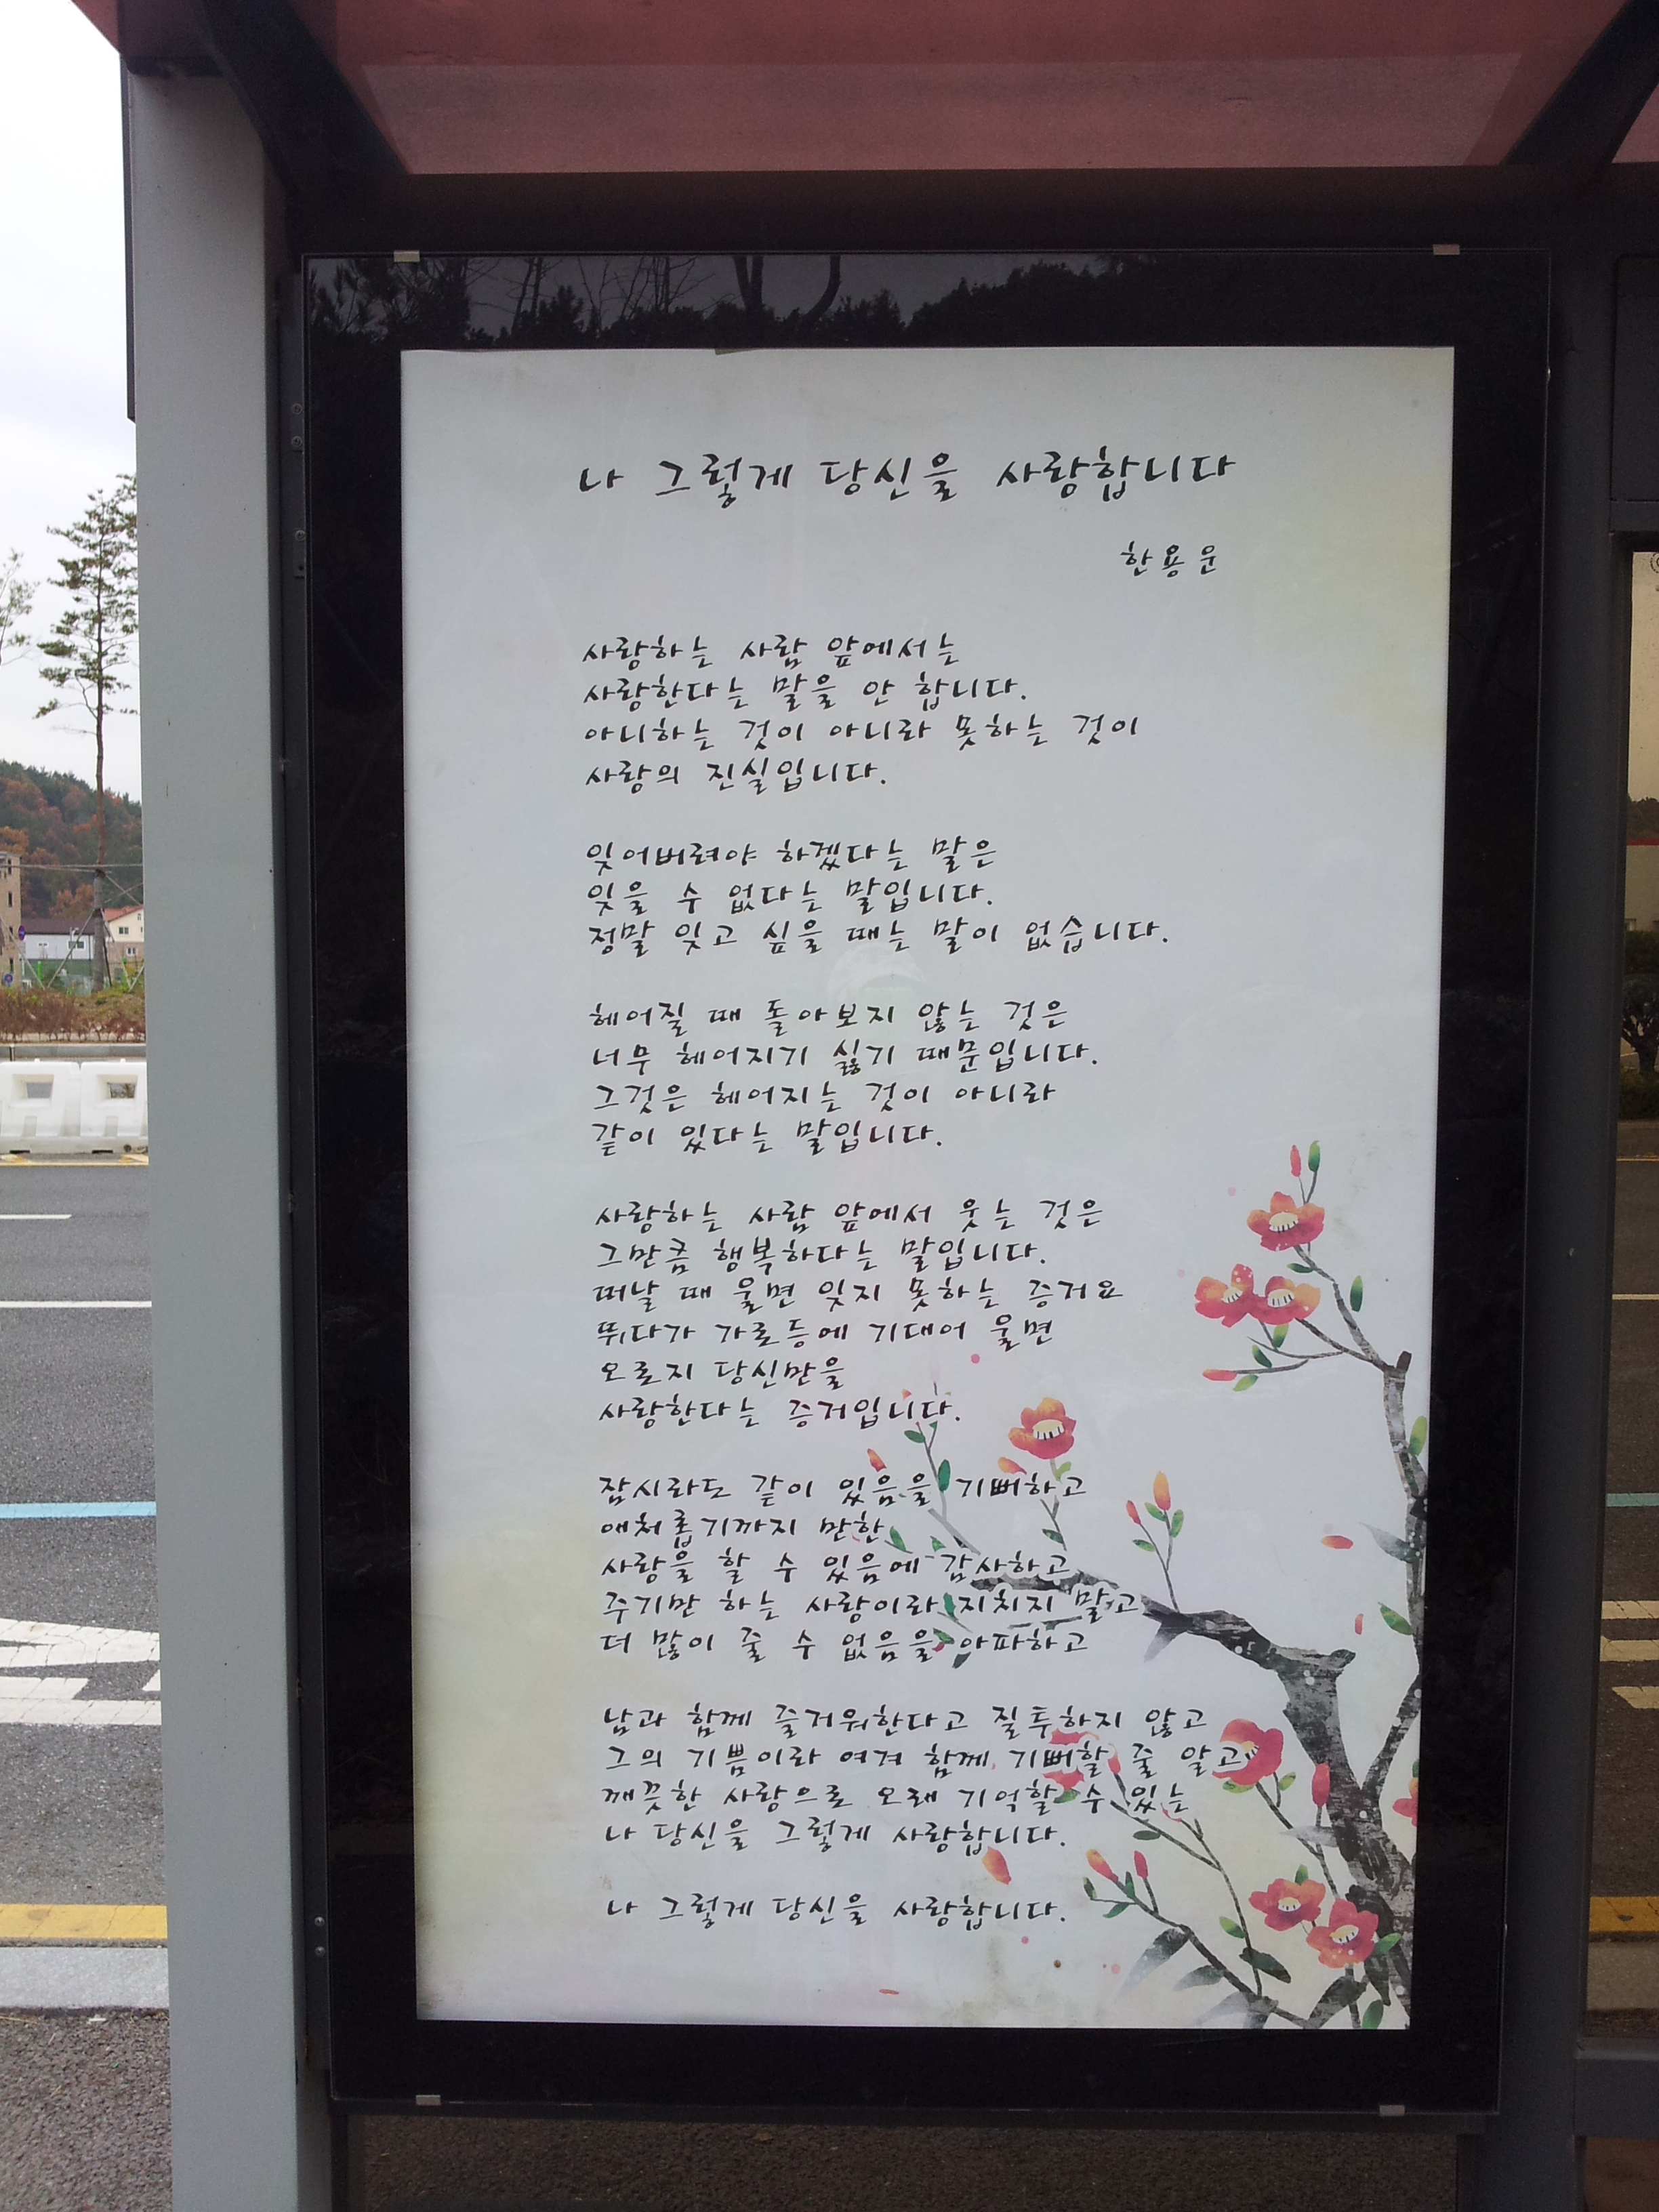 나 그렇게 당신을 사랑합니다
한용운
사랑하는 사람 앞에서는
사랑한다는 말을 안 합니다.
아니하는 것이 아니라 못하는 것이
사랑의 진실입니다.
잊어버려야 하겠다는 말은
잊을 수 없다는 말입니다.
정말 잊고 싶을 때는 말이 없습니다.
헤어질 때 돌아보지 않는 것은
너무 헤어지기 싫기 때문입니다.
그것은 헤어지는 것이 아니라
같이 있다는 말입니다.
사랑하는 사람 앞에서 웃는 것은
그만큼 행복하다는 말입니다.
떠날 때 울면 잊지 못하는 증거요
뛰다가 가로등에 기대어 울면
오로지 당신만을
사랑한다는 증거입니다.
잠시라도 같이 있음을 기뻐하고
애처롭기까지 만한
사랑을 할 수 있음에 감사하고
주기만 하는 사랑이라 지치지 말고
더 많이 줄 수 없음을 아파하고
남과 함께 즐거워한다고 질투하지 않고
그의 기쁨이라 여겨 함께 기뻐할 줄 알고
깨끗한 사랑으로 오래 기억할 수 있는
나 당신을 그렇게 사랑합니다.
나 그렇게 당신을 사랑합니다.